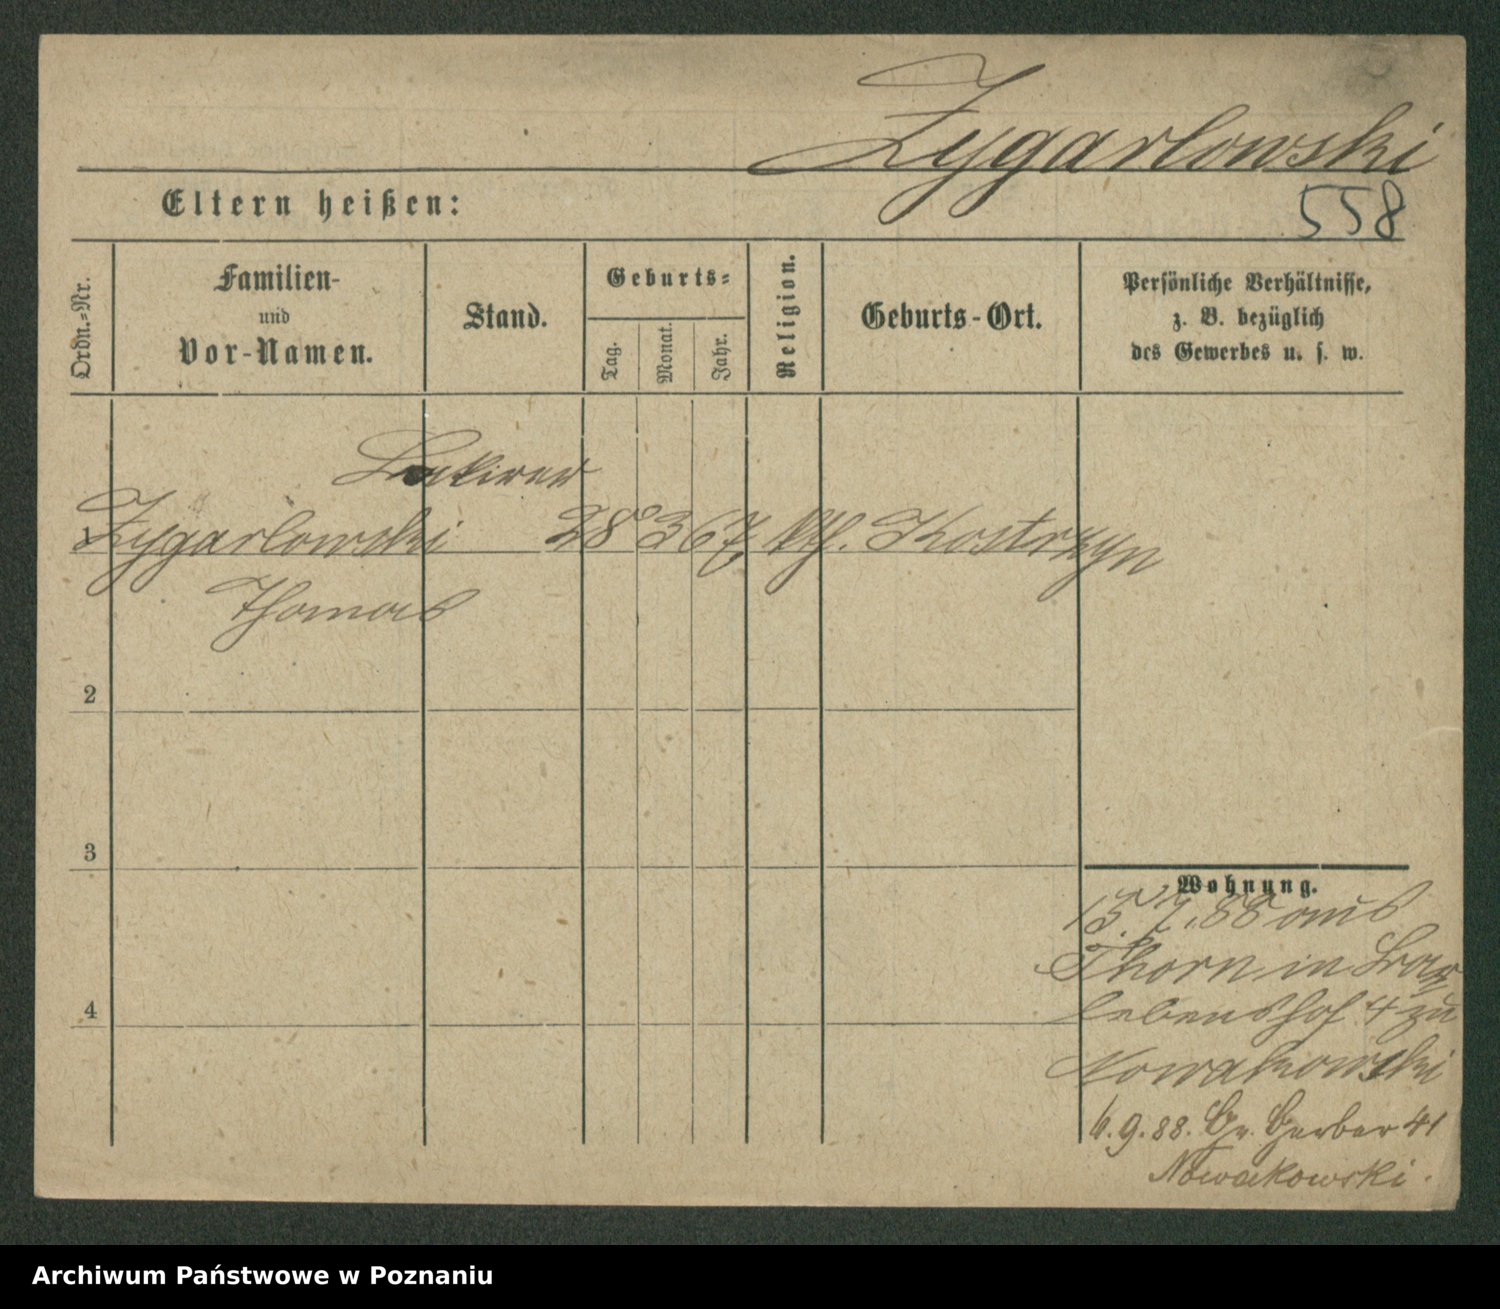 Zygarlowski
Eltern heißen:
558
Ordn.-Nr.
Familien-
und
Vor-Namen.
Stand.
Geburts-
Tag.
Monat.
Jahr.
Religion.
Geburts-Ort.
Persönliche Verhältnisse,
z. B. bezüglich
des Gewerbes u. s. w.
Lakirer
1 Zygarlowski 28 3 67 kth. Kostrzyn
Thomas
2
3
4
Wohnung.
15.7.88 aus
Thorn in
lebenshof 4 zu
Nowakowski
6.9.88. Gr. Gerber 41
Nowakowski.
Archiwum Państwowe w Poznaniu